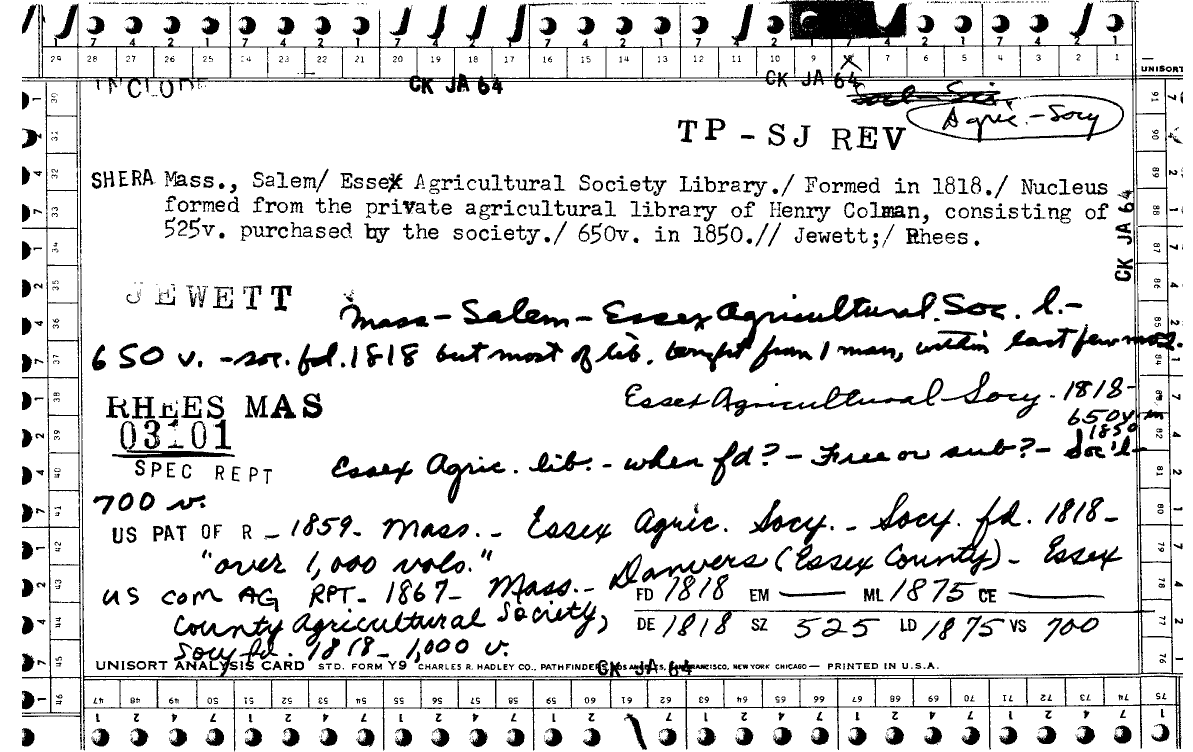 29 28 27 26 25 24 23 22 21 20 19 18 17 16 15 14 13 12 11 10 9 8 7 6 5 4 3 2 1
UNISORT
INCLUDE CK JA 64 CK JA 64
Agric. - Socy
TP - SJ REV
SHERA Mass., Salem/ Essex Agricultural Society Library./ Formed in 1818./ Nucleus
formed from the private agricultural library of Henry Colman, consisting of
525v. purchased by the society./ 650v. in 1850.// Jewett;/ Rhees.
CK JA 64
JEWETT Mass - Salem - Essex Agricultural Soc. l. -
650 v. - soc. fd. 1818 but most of lib. bought from 1 man, within last few mos.
Essex Agricultural Socy. 1818-
650 v in
1850
RHEES MAS
03101
SPEC REPT Essex Agric. lib. - when fd? - Free or sub? - Soc'l -
700 v.
US PAT OF R - 1859 - Mass. - Essex Agric. Socy. - Socy. fd. 1818 -
"over 1,000 vols."
US COM AG RPT - 1867 - Mass. - Danvers (Essex County) - Essex
County Agricultural Society,
Socy fd. 1818 - 1,000 v.
FD 1818 EM — ML 1875 CE —
DE 1818 SZ 525 LD 1875 VS 700
UNISORT ANALYSIS CARD STD. FORM Y9 CHARLES R. HADLEY CO., PATHFINDERS, LOS ANGELES, SAN FRANCISCO, NEW YORK CHICAGO — PRINTED IN U.S.A.
CK JA 64
47 48 49 50 51 52 53 54 55 56 57 58 59 60 61 62 63 64 65 66 67 68 69 70 71 72 73 74 75